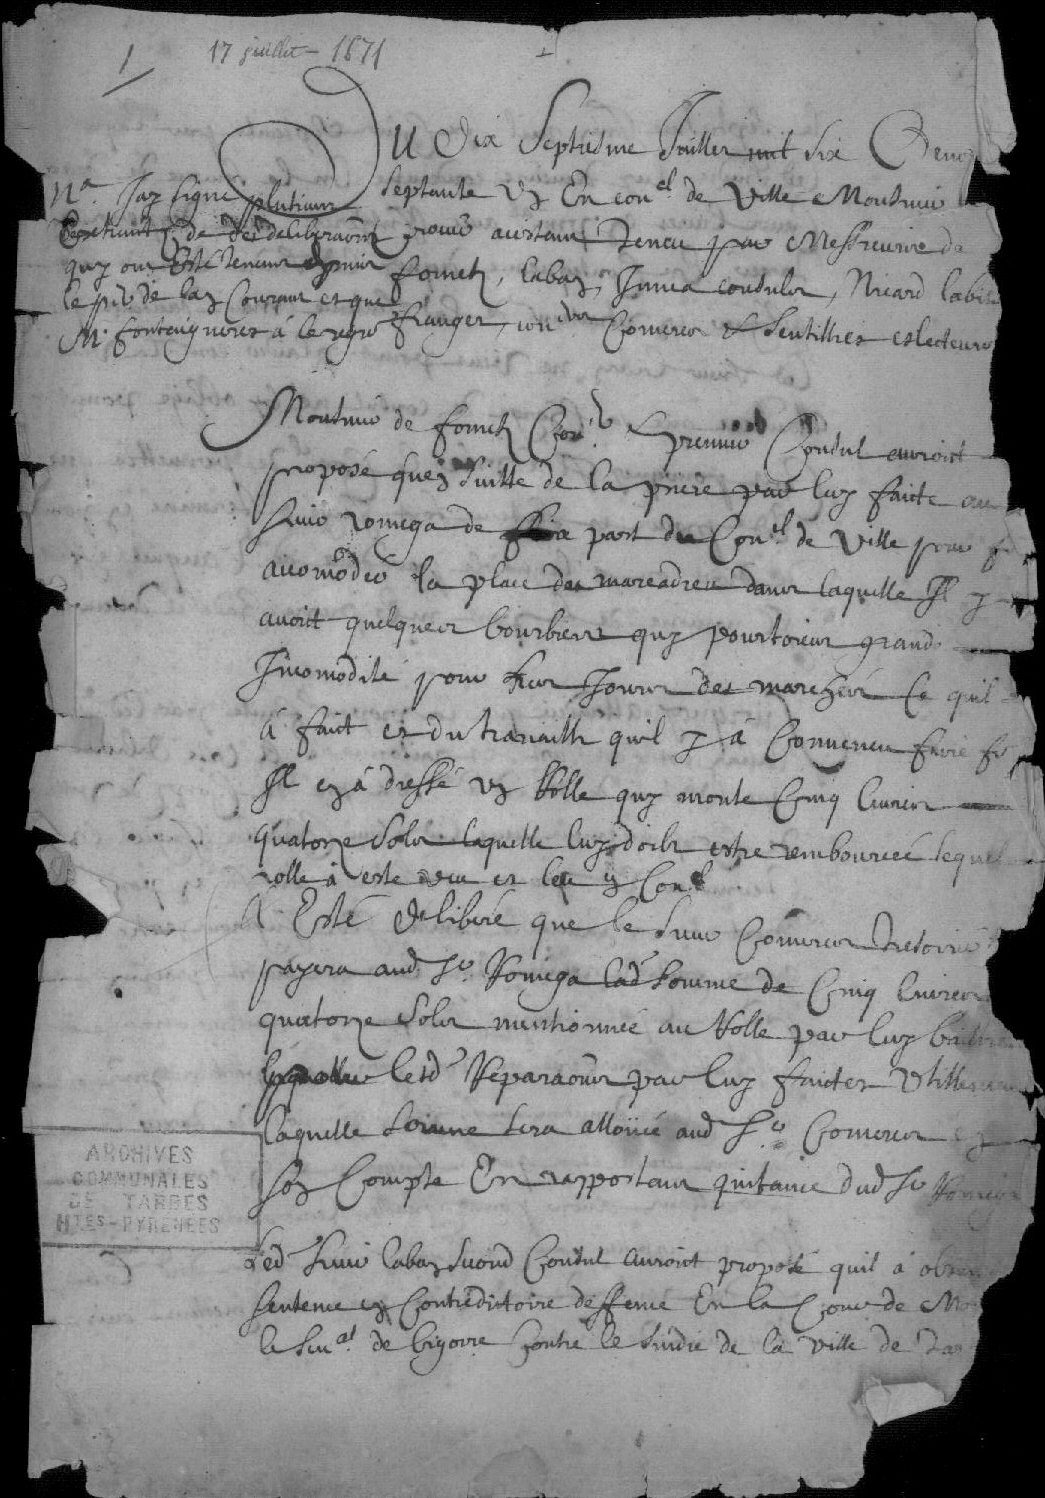 1
17 juillet - 1671
Du dix septiesme Juillet mil six Cens
septante un En con.el de ville Monsieur
fornetz, labay, consuls, Nicard
Comerer & sentilhes eslecteurs
N.a Jay signe plusieurs
extraits de des deliberaons
quy ont esté tenues depuis
le pr de lan Courant et que
Mr fontaigneres à le regre
Monsieur de fornetz Con.er & premier Consul auroit
proposé quen suitte de la priere par luy faicte au
sieur romega de part du Con.el de Ville pour
accomoder la place des marcadieu dans laquelle Il y
avoit quelques bourbiers quy pourtoient grande
Incomodité pour les Jours des marchés Ce quil
à faict et du travailh quil y à Convenu faire
Il en à dressé un Rolle quy monte Cinq livres
quatorze solz laquelle luy doibt estre remboursée lequel
rolle à esté veu et leu en Con.el
A Esté deliberé que le sieur Comerer tresorier
payera aud sr. Romega lad somme de Cinq livres
quatorze solz mentionnée au Rolle par luy
lesd Reparaons par luy faictes utillement
laquelle somme sera alloüée aud Sr Comerer en
son Compte En rapportant quitance dud sr Romega
Led sieur labay second Consul auroit proposé quil à obtenu
sentence en Contredictoire deffence En la Cour de Mr
le Sen.al de bigorre Contre le sindic de la ville de
ARCHIVES
COMMUNALES
DE TARBES
HTES-PYRENEES